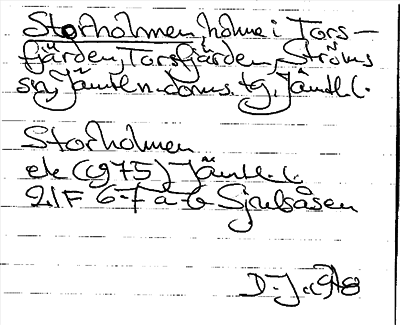 Storholmen, holme i Tors-
fjärden, Torsfjärden, Ströms
sn, Jämtl. n. doms. tg, Jämtl. l.
Storholmen
ek (1975) Jämtl. l.
21F 6-7 a-b Sjulsåsen
D.J. 1978